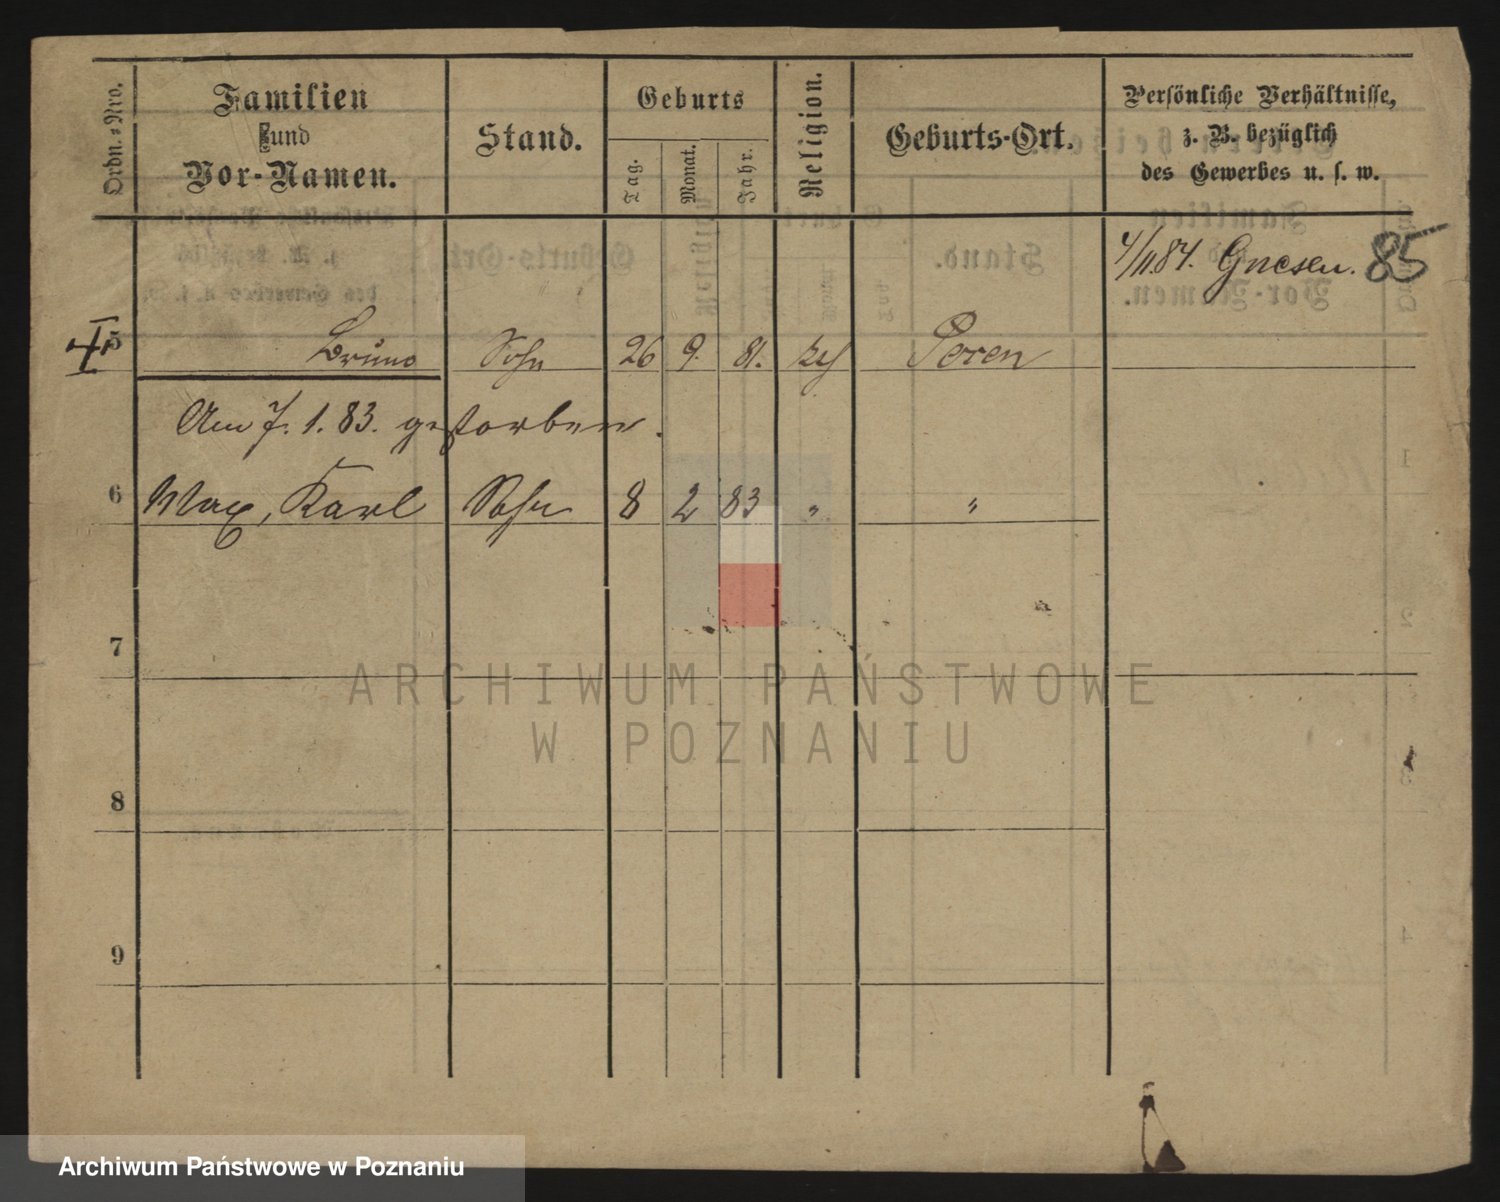 Ordn.-Nro. Familien und Vor-Namen. Stand. Geburts Tag. Monat. Jahr. Religion. Geburts-Ort. Persönliche Verhältnisse, z. B. bezüglich des Gewerbes u. s. w.
4/11 84. Gnesen. 85
5 Bruno Sohn 26 9. 81. Posen
Am 7. 1. 83. gestorben.
6 Max, Karl Sohn 8 2 83 " "
7
8
9
ARCHIWUM PAŃSTWOWE
W POZNANIU
Archiwum Państwowe w Poznaniu